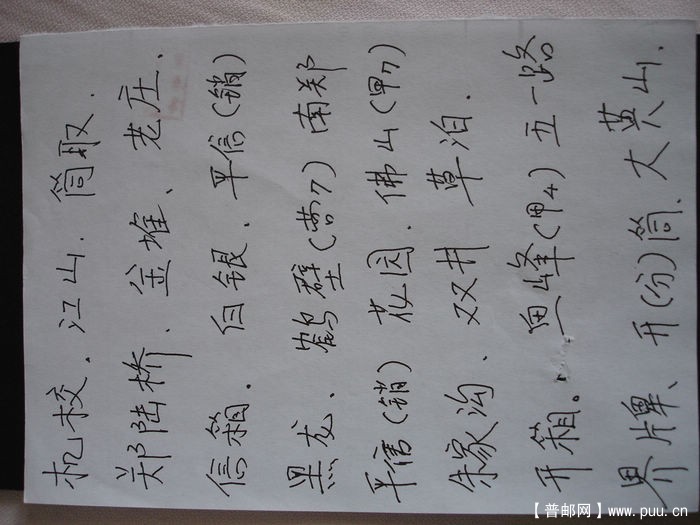 机校．江山．筒取．
郑陆桥、金堆、老庄、
信箱．白银．平信(销)
黑龙、鹤壁(营7)南郑
平信(销)花园．佛山(甲7)
朱家沟、双井 草泊．
开箱。鱼峰(甲4)五一路
界牌、开(分)筒、大黄山．
【普邮网】www.puu.cn